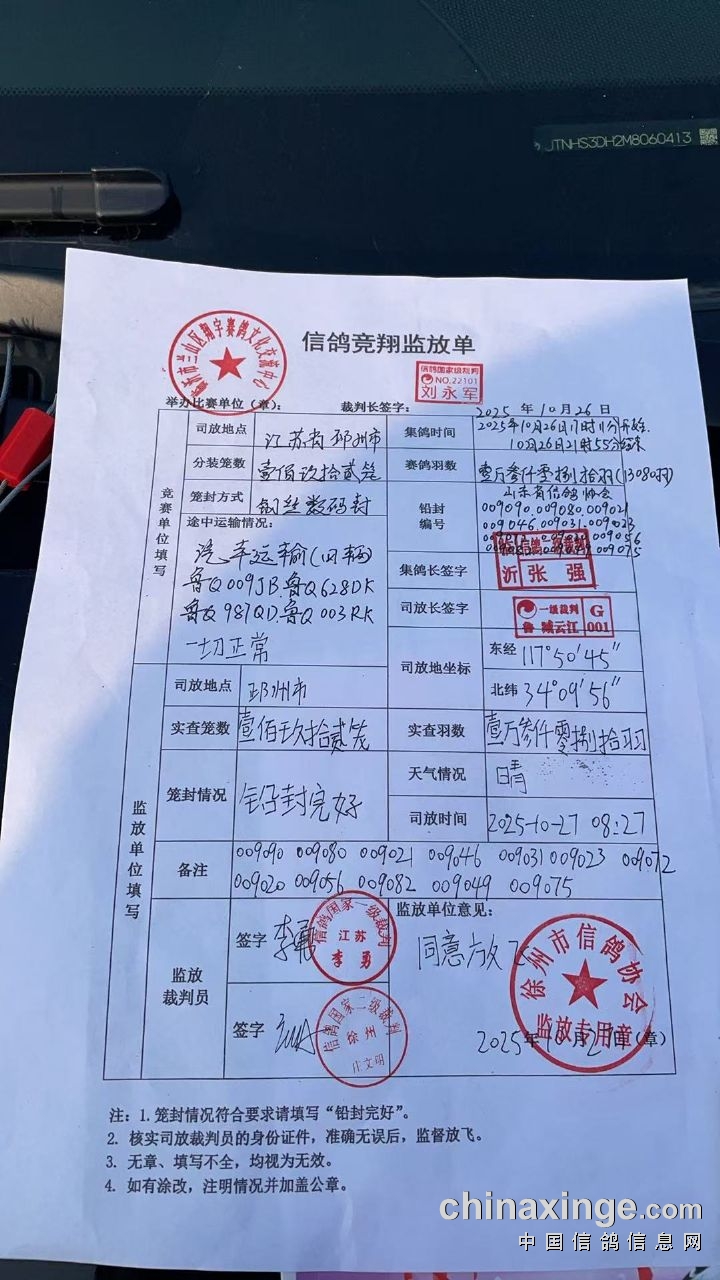 JTNHS3DH2M8060413
信鸽竞翔监放单
临沂市兰山区翔宇赛鸽文化交流中心
信鸽国家级裁判
NO.22101
刘永军
举办比赛单位(章): 裁判长签字: 2025 年 10 月 26 日
竞赛单位填写
司放地点 江苏省邳州市 集鸽时间 2025年10月26日17时11分开始. 10月26日21时55分结束
分装笼数 壹佰玖拾贰笼 赛鸽羽数 壹万参仟零捌拾羽(13080羽)
笼封方式 钢丝数码封 铅封编号 山东省信鸽协会
009090.009080.009021
009046.009031.009023
009056
009075
途中运输情况:
汽车运输(四辆)
鲁Q009JB.鲁Q628DK
鲁Q987QD.鲁Q003RK
一切正常
集鸽长签字 沂 张强
司放长签字 一级裁判 G 鲁 臧云江 001
司放地坐标 东经 117°50′45″
北纬 34°09′56″
监放单位填写
司放地点 邳州市
实查笼数 壹佰玖拾贰笼 实查羽数 壹万参仟零捌拾羽
笼封情况 铅封完好 天气情况 晴
司放时间 2025-10-27 08:27
备注 009090 009080 009021 009046 009031 009023 009072
009020 009056 009082 009049 009075
监放裁判员
签字 李勇 信鸽国家一级裁判 江苏 李勇
签字 信鸽国家二级裁判 徐州 庄文明
监放单位意见:
同意放飞
徐州市信鸽协会
监放专用章
2025年10月27日(章)
注: 1. 笼封情况符合要求请填写“铅封完好”。
2. 核实司放裁判员的身份证件,准确无误后,监督放飞。
3. 无章、填写不全,均视为无效。
4. 如有涂改,注明情况并加盖公章。
chinaxinge.com
中国信鸽信息网